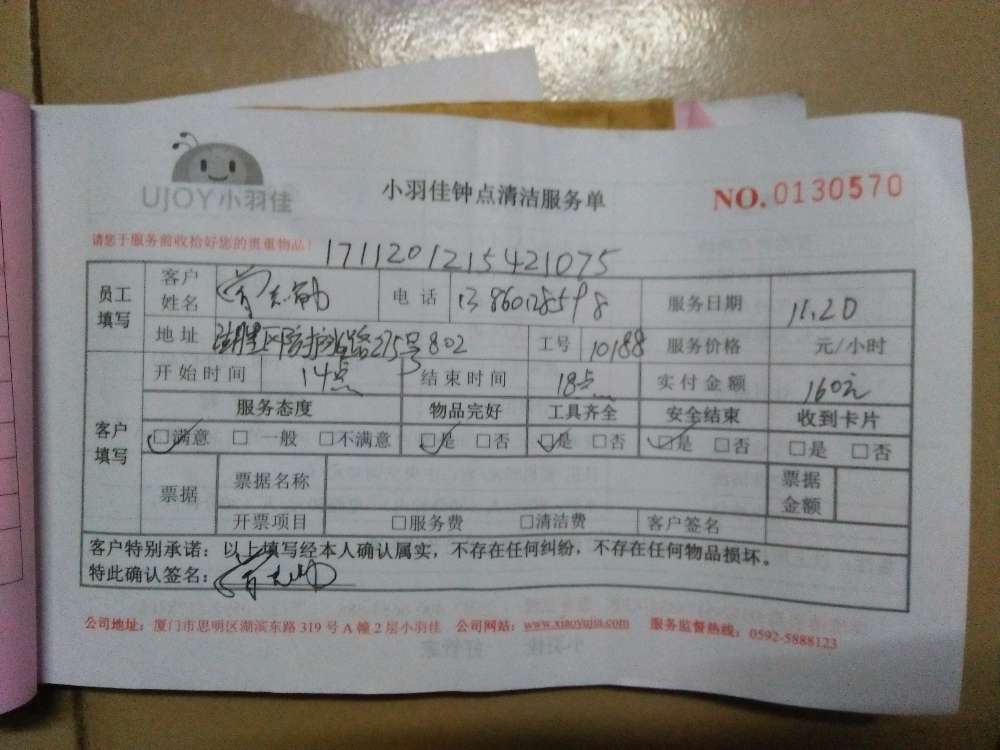 UJOY小羽佳
小羽佳钟点清洁服务单
NO.0130570
请您于服务前收拾好您的贵重物品!
1711201215421075
员工填写 客户姓名 电话 13860128598 服务日期 11.20
地址 275号802 工号 10188 服务价格 元/小时
开始时间 14点 结束时间 18点 实付金额 160元
客户填写 服务态度 物品完好 工具齐全 安全结束 收到卡片
□满意 □一般 □不满意 □是 □否 □是 □否 □是 □否 □是 □否
票据 票据名称 票据金额
开票项目 □服务费 □清洁费 客户签名
客户特别承诺:以上填写经本人确认属实,不存在任何纠纷,不存在任何物品损坏。
特此确认签名:
公司地址:厦门市思明区湖滨东路 319 号 A 幢 2 层小羽佳 公司网站:www.xiaoyujia.com 服务监督热线:0592-5888123